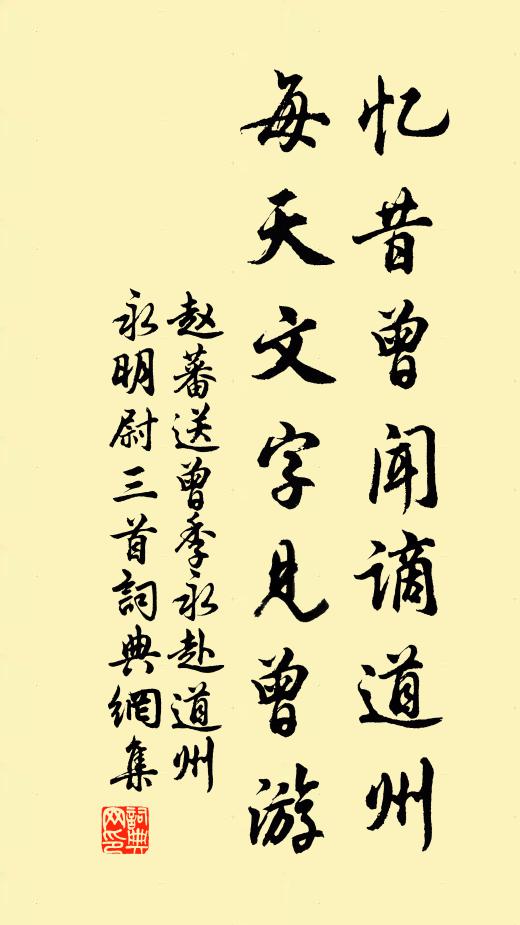 忆昔曾闻谪道州
每天文字见曾游
赵蕃送曾季永赴道州
永明尉三首詞典網集
詞典
网印